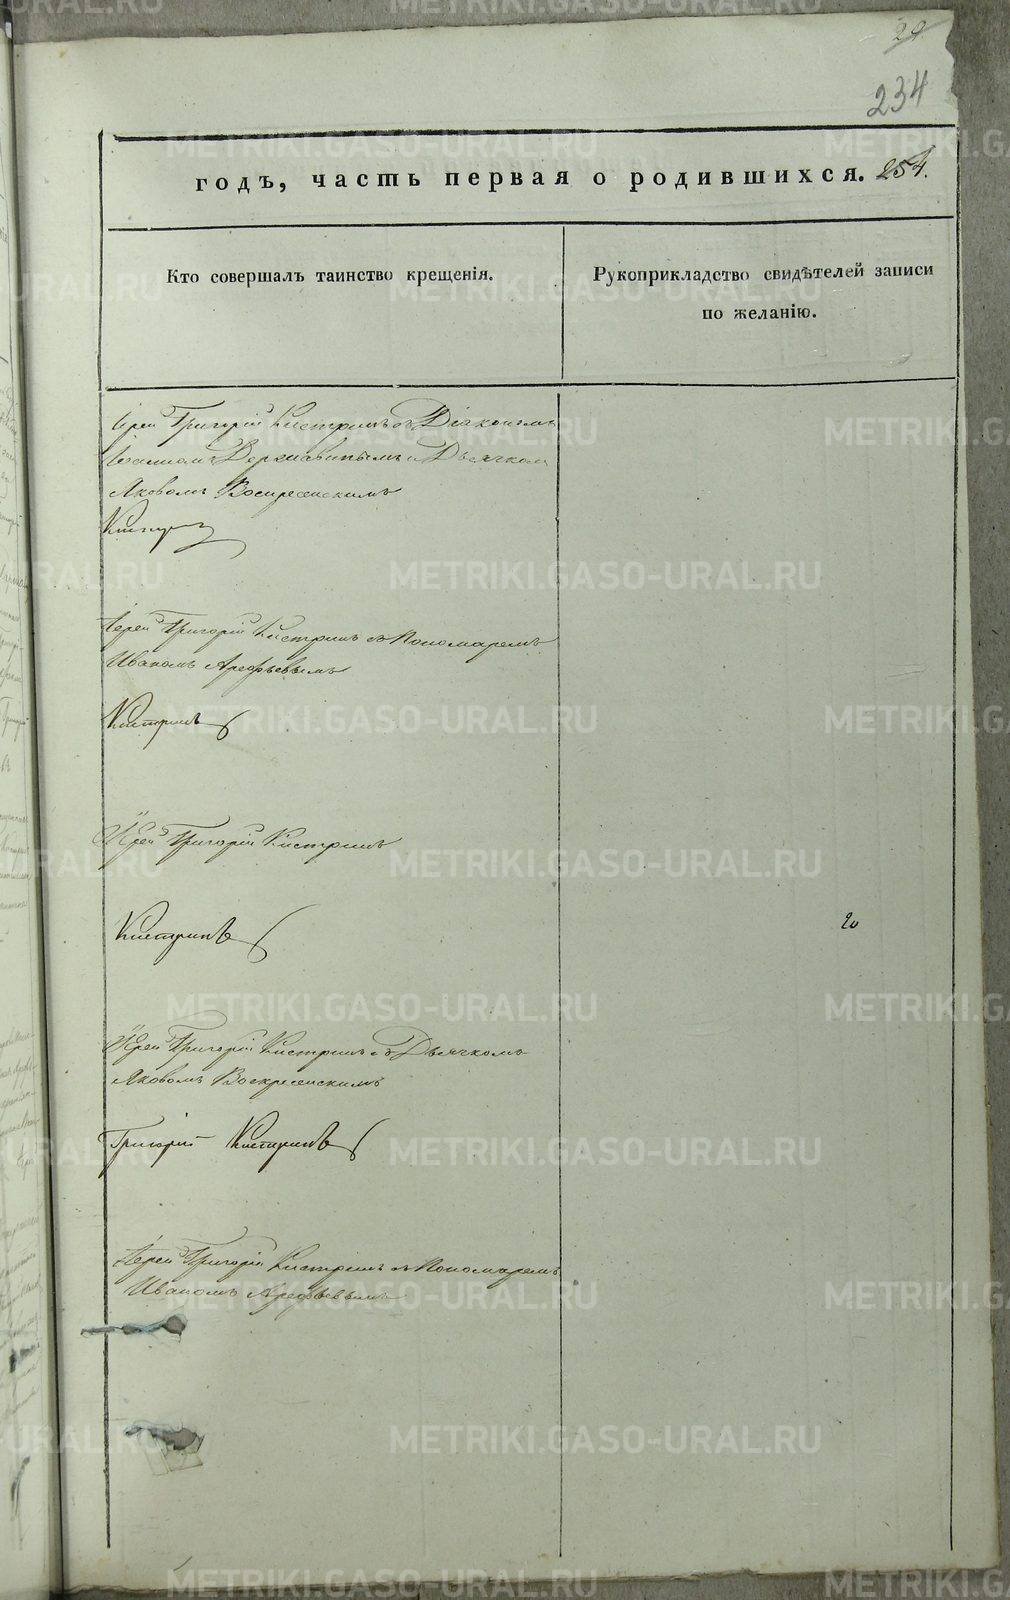 29.
234
годъ, часть первая о родившихся. 254.
Кто совершалъ таинство крещенія.
Рукоприкладство свидѣтелей записи
по желанію.
Іерей Григорій Кистринъ съ Діакономъ
Іоанномъ Державинымъ и Дьячком
Яковомъ Воскресенскимъ
Іерей Григорій Кистринъ съ Пономаремъ
Иваномъ Арефьевымъ
Кистринъ
Іерей Григорій Кистринъ
Кистринъ
20
Іерей Григорій Кистринъ съ Дьячкомъ
Яковомъ Воскресенскимъ
Григорій Кистринъ
Іерей Григорій Кистринъ съ Пономаремъ
Иваномъ Арефьевымъ
METRIKI.GASO-URAL.RU